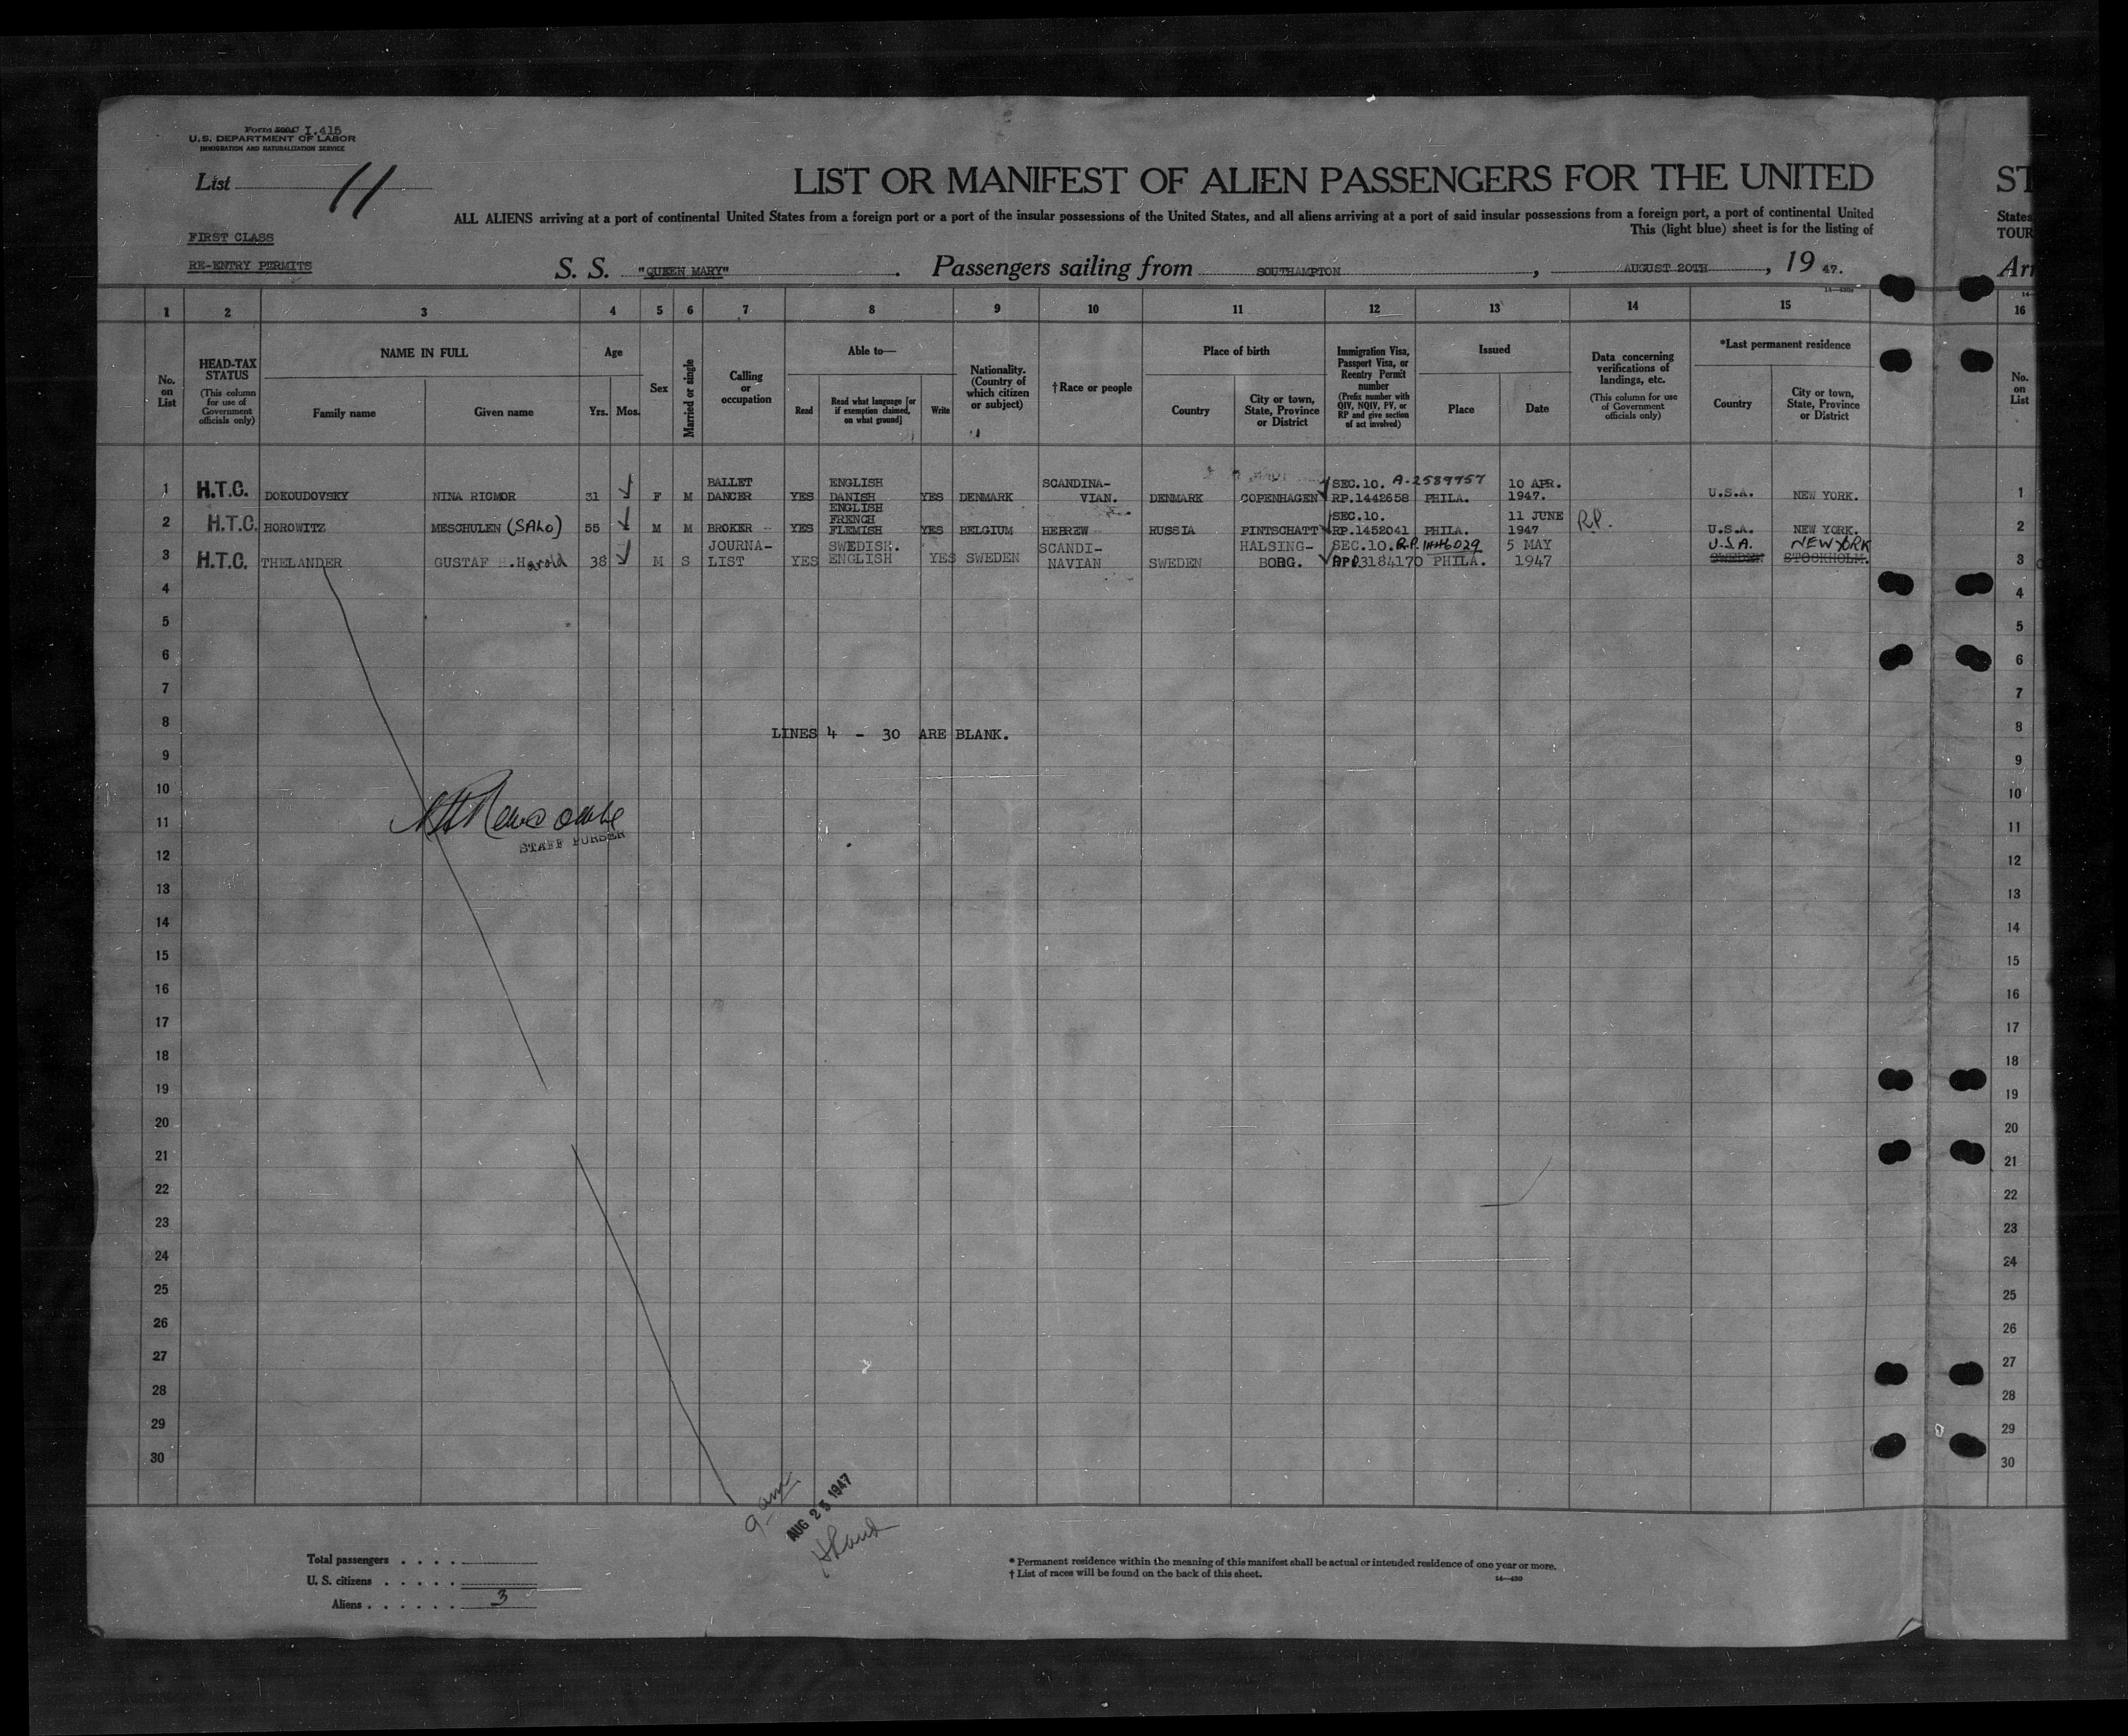 Form 500C I.415
U.S. DEPARTMENT OF LABOR
IMMIGRATION AND NATURALIZATION SERVICE
List 11
LIST OR MANIFEST OF ALIEN PASSENGERS FOR THE UNITED
ST
ALL ALIENS arriving at a port of continental United States from a foreign port or a port of the insular possessions of the United States, and all aliens arriving at a port of said insular possessions from a foreign port, a port of continental United
States
This (light blue) sheet is for the listing of
TOUR
FIRST CLASS
RE-ENTRY PERMITS
S. S. "QUEEN MARY" . Passengers sailing from SOUTHAMPTON , AUGUST 20TH , 19 47.
Arr
1 2 3 4 5 6 7 8 9 10 11 12 13 14 15 16
No. on List
HEAD-TAX STATUS
(This column for use of Government officials only)
NAME IN FULL
Family name
Given name
Age
Yrs. Mos.
Sex
Married or single
Calling or occupation
Able to—
Read
Read what language [or if exemption claimed, on what ground]
Write
Nationality. (Country of which citizen or subject)
†Race or people
Place of birth
Country
City or town, State, Province or District
Immigration Visa, Passport Visa, or Reentry Permit number
(Prefix number with QIV, NQIV, PV, or RP and give section of act involved)
Issued
Place
Date
Data concerning verifications of landings, etc.
(This column for use of Government officials only)
*Last permanent residence
Country
City or town, State, Province or District
No. on List
BALLET ENGLISH SCANDINA- SEC.10. A-2589957 10 APR.
1 H.T.C. DOKOUDOVSKY NINA RIGMOR 31 F M DANCER YES DANISH YES DENMARK VIAN. DENMARK COPENHAGEN RP.1442658 PHILA. 1947. U.S.A. NEW YORK. 1
ENGLISH
FRENCH SEC.10. 11 JUNE
2 H.T.C. HOROWITZ MESCHULEN (SALO) 55 M M BROKER YES FLEMISH YES BELGIUM HEBREW RUSSIA PINTSCHATT RP.1452041 PHILA. 1947 R.P. U.S.A. NEW YORK. 2
JOURNA- SWEDISH. SCANDI- HALSING- SEC.10. R.P. 1446029 5 MAY U.S.A. NEW YORK
3 H.T.C. THELANDER GUSTAF H.Harold 38 M S LIST YES ENGLISH YES SWEDEN NAVIAN SWEDEN BORG. 3184170 PHILA. 1947 SWEDEN STOCKHOLM. 3
4 4
5 5
6 6
7 7
8 8
LINES 4 - 30 ARE BLANK.
9 9
10 10
11 11
Newcombe
STAFF PURSER
12 12
13 13
14 14
15 15
16 16
17 17
18 18
19 19
20 20
21 21
22 22
23 23
24 24
25 25
26 26
27 27
28 28
29 29
30 30
9 am
AUG 25 1947
Total passengers . . . .
U. S. citizens . . . . .
Aliens . . . . . . 3
* Permanent residence within the meaning of this manifest shall be actual or intended residence of one year or more.
† List of races will be found on the back of this sheet.
14—430